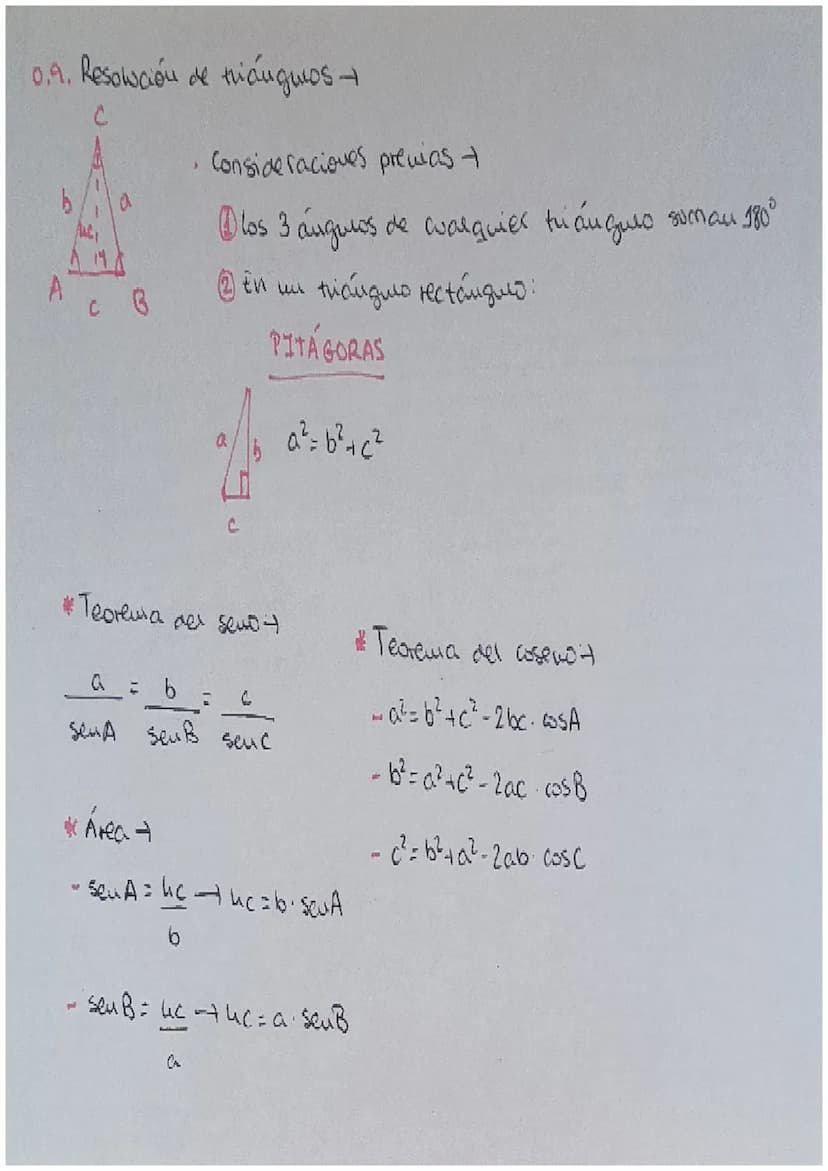 0.9. Resolución de triángulos →
C
b a
hc
A c B
· Consideraciones previas →
① los 3 ángulos de cualquier triángulo suman 180°
② En un triángulo rectángulo:
PITÁGORAS
a b
c
a² = b² + c²
* Teorema del seno →
a/senA = b/senB = c/senC
* Teorema del coseno →
- a² = b² + c² - 2bc · cosA
- b² = a² + c² - 2ac · cosB
- c² = b² + a² - 2ab · cosC
* Área →
- senA = hc/b → hc = b · senA
- senB = hc/a → hc = a · senB